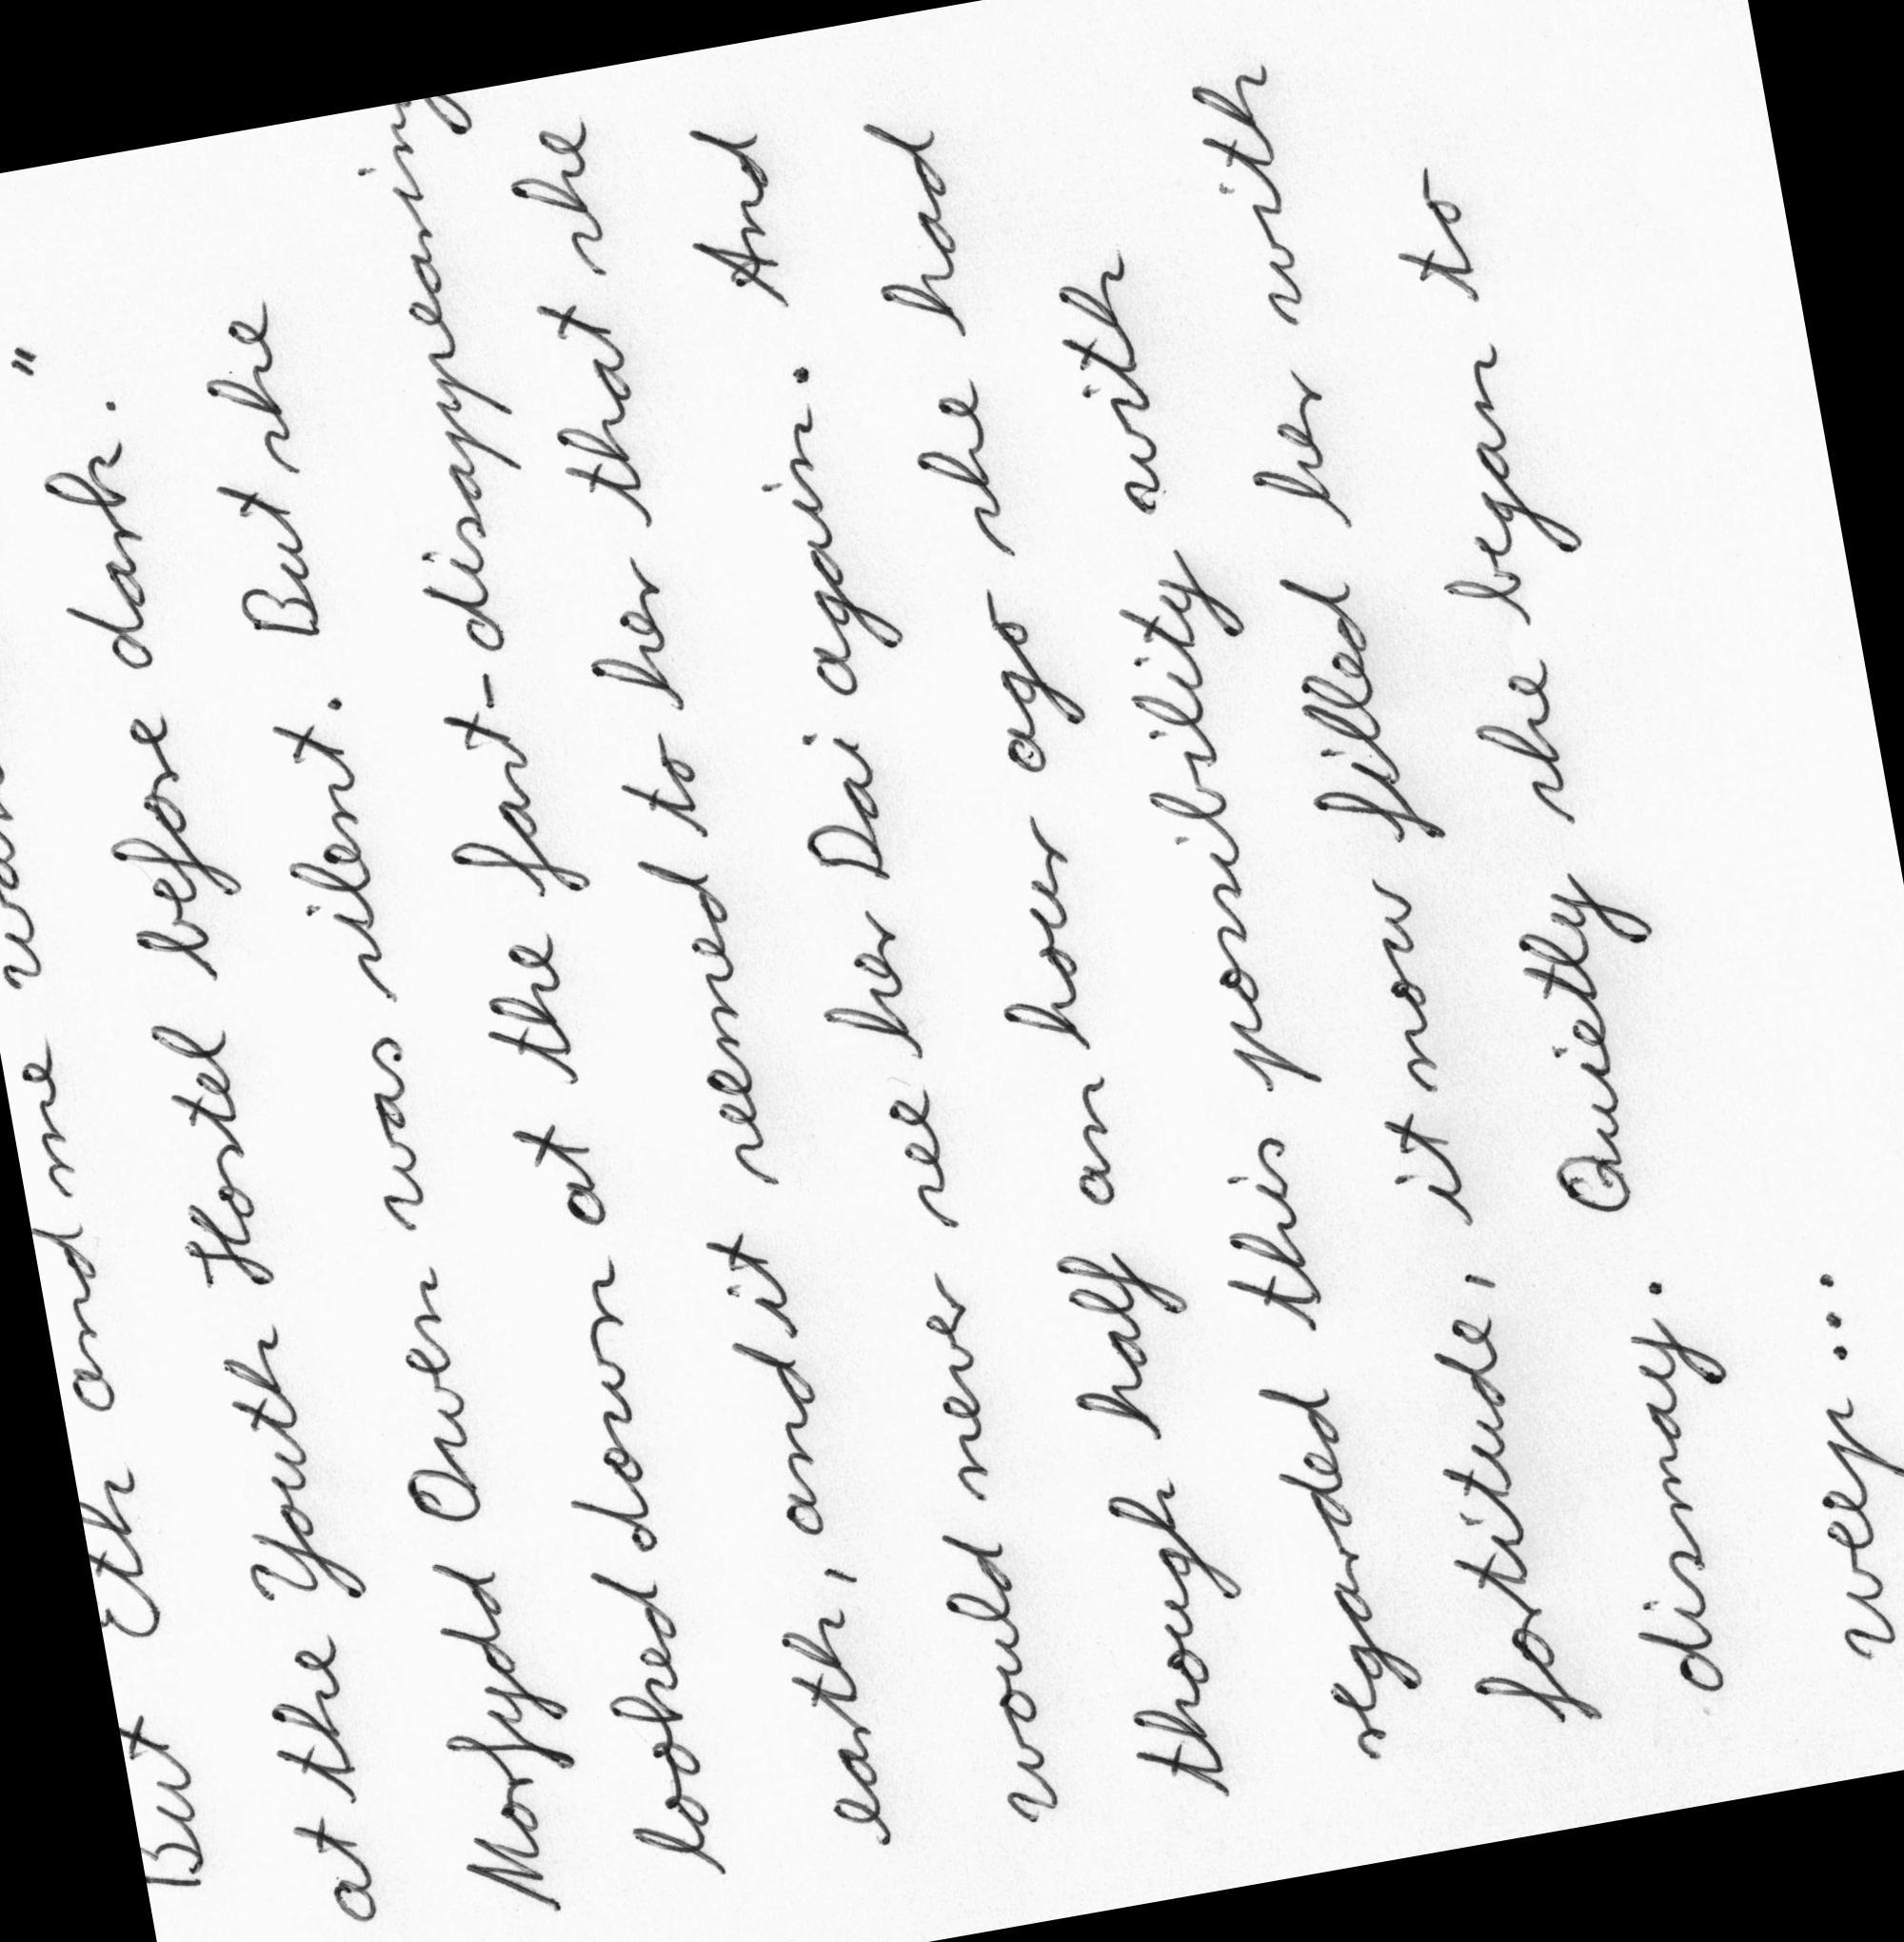 But Eth and me
at the Youth Hostel before dark."
Morfydd Owen was silent. But she
looked down at the fast-disappearing
earth, and it seemed to her that she
would never see her Dai again. And
though half an hour ago she had
regarded this possibility with
fortitude, it now filled her with
dismay. Quietly she began to
weep...